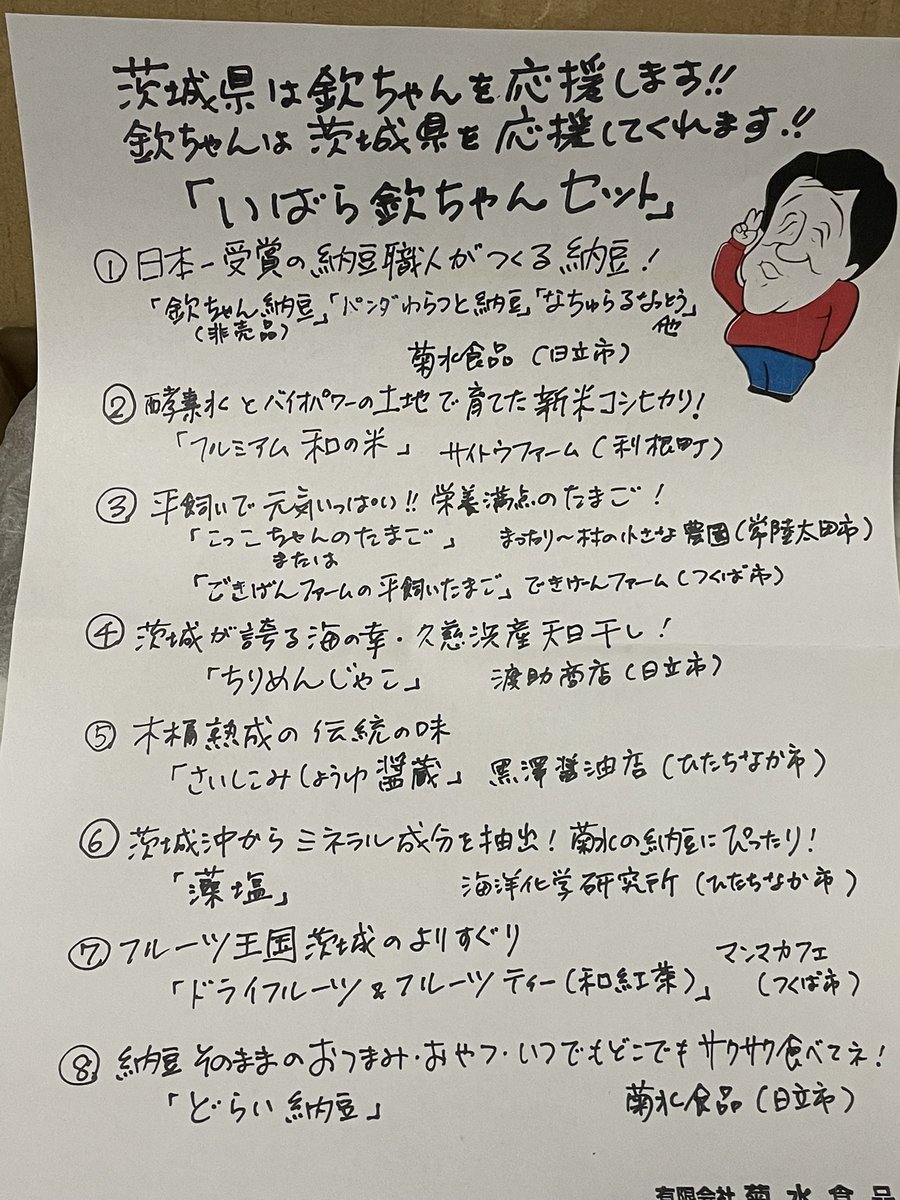 茨城県は欽ちゃんを応援します!!
欽ちゃんは茨城県を応援してくれます!!
「いばら欽ちゃんセット」
① 日本一受賞の納豆職人がつくる納豆!
「欽ちゃん納豆」「パンダわらづと納豆」「なちゅらるなっとう」他
(非売品)
菊水食品(日立市)
② 酵素水とバイオパワーの土地で育てた新米コシヒカリ!
「フルミアム和の米」 サイトウファーム(利根町)
③ 平飼いで元気いっぱい!!栄養満点のたまご!
「こっこちゃんのたまご」 まったり〜村の小さな農園(常陸太田市)
または
「ごきげんファームの平飼いたまご」ごきげんファーム(つくば市)
④ 茨城が誇る海の幸・久慈浜産天日干し!
「ちりめんじゃこ」 渡助商店(日立市)
⑤ 木桶熟成の伝統の味
「さいしこみしょうゆ醤蔵」 黒澤醤油店(ひたちなか市)
⑥ 茨城沖からミネラル成分を抽出!菊水の納豆にぴったり!
「藻塩」 海洋化学研究所(ひたちなか市)
⑦ フルーツ王国茨城のよりすぐり
「ドライフルーツ&フルーツティー(和紅茶)」 マンマカフェ
(つくば市)
⑧ 納豆そのままのおつまみ・おやつ・いつでもどこでもサクサク食べてネ!
「どらい納豆」 菊水食品(日立市)
有限会社 菊水食品